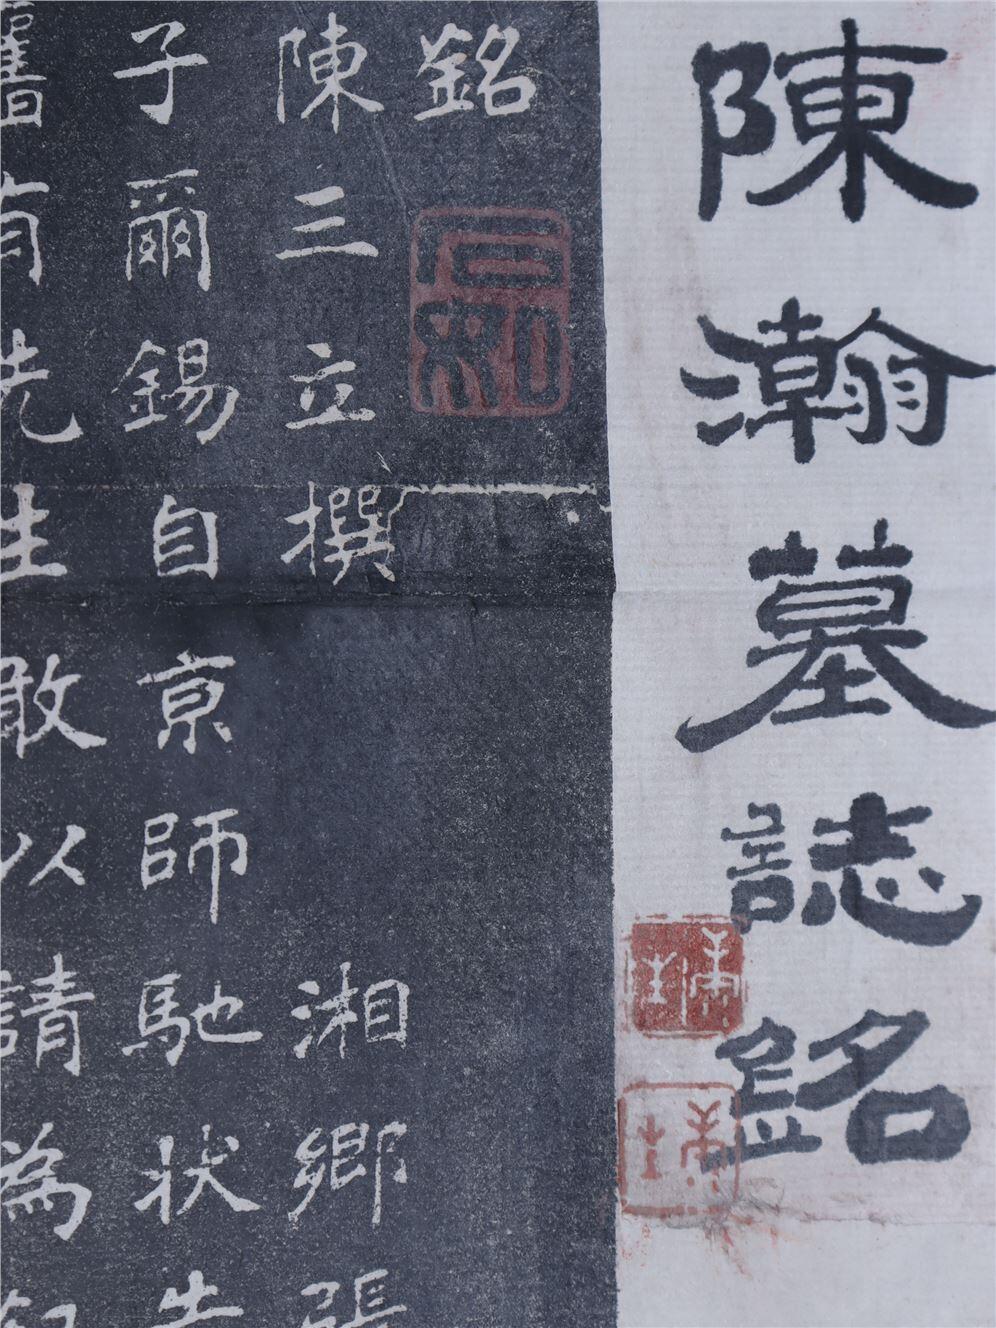 陳瀚墓誌銘
銘
陳三立撰 湘鄉張
子爾錫自京師馳狀告
舊有先生敢以請為